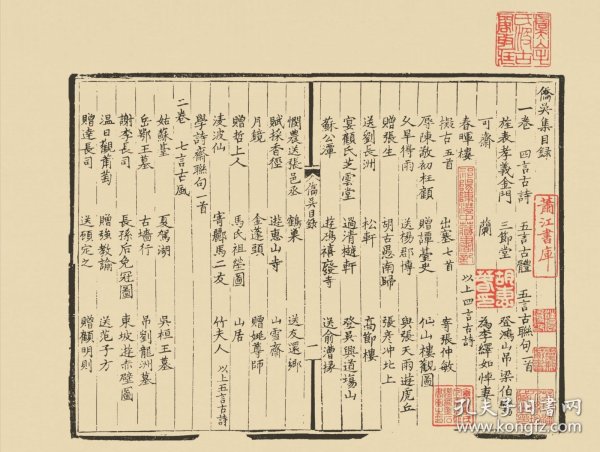 僑吳集目錄
一卷 四言古詩 五言古體 五言古聯句一首
旌表孝義金門 三節堂 登鴻山吊梁伯鸞
可齋 蘭 為李繹如悼妻
以上四言古詩
春暉樓 出塞七首 寄張仲敏
擬古五首 贈譚臺史 仙山樓觀圖
厚陳敬初枉顧 送楊郡博 與張天雨遊虎丘
久旱得雨 胡古愚南歸 張彥冲北上
贈張生 松軒 高節樓
送劉長洲 過清樾軒 登吳興道場山
宴顧氏芝雲堂 遊鴈禧發寺 送俞漕掾
蘇公潭
僑吳目錄
一
憫農送張邑丞 鶴巢 送友還鄉
賦採香徑 遊惠山寺 山雪齋
月鏡 金蓬頭 贈姚尊師
贈哲上人 馬氏祖塋圖 山居
凌波仙 寄酈馬二友 竹夫人
學詩齋聯句一首 以上五言古詩
二卷 七言古風
姑蘇臺 夏駕湖 吳桓王墓
岳鄂王墓 古墻行 吊劉龍洲墓
謝李長司 長孫后免冠圖 東坡遊赤壁圖
溫日觀蒲萄 贈強教諭 送范子方
贈達長司 送顧定之 贈顧明則
蕭江書庫
孔夫子旧书网
www.kongfz.com